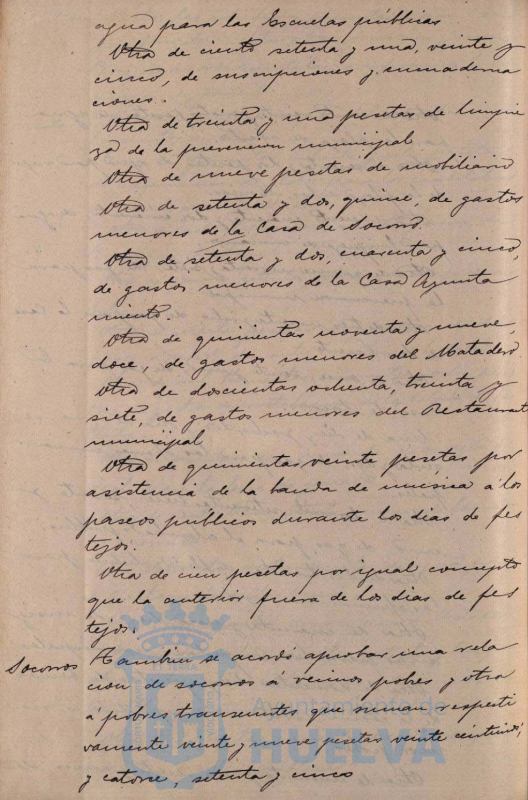 agua para las Escuelas públicas
Otra de ciento setenta y una, veinte y
cinco, de suscripciones y encuaderna
ciones.
Otra de treinta y una pesetas de limpie
za de la prevencion municipal
Otra de nueve pesetas de mobiliario
Otra de setenta y dos, quince, de gastos
menores de la Casa de Socorro.
Otra de setenta y dos, cuarenta y cinco,
de gastos menores de la Casa Ayunta
miento.
Otra de quinientas noventa y nueve,
doce, de gastos menores del Matadero
Otra de doscientas ochenta, treinta y
siete, de gastos menores del Restaurant
municipal
Otra de quinientas veinte pesetas por
asistencia de la banda de música á los
paseos publicos durante los dias de fes
tejos.
Otra de cien pesetas por igual concepto
que la anterior fuera de los dias de fes
tejos.
Socorros Tambien se acordó aprobar una rela
cion de socorros á vecinos pobres y otra
á pobres transeuntes que suman respecti
vamente veinte y nueve pesetas veinte céntimos,
y catorce, setenta y cinco
HUELVA